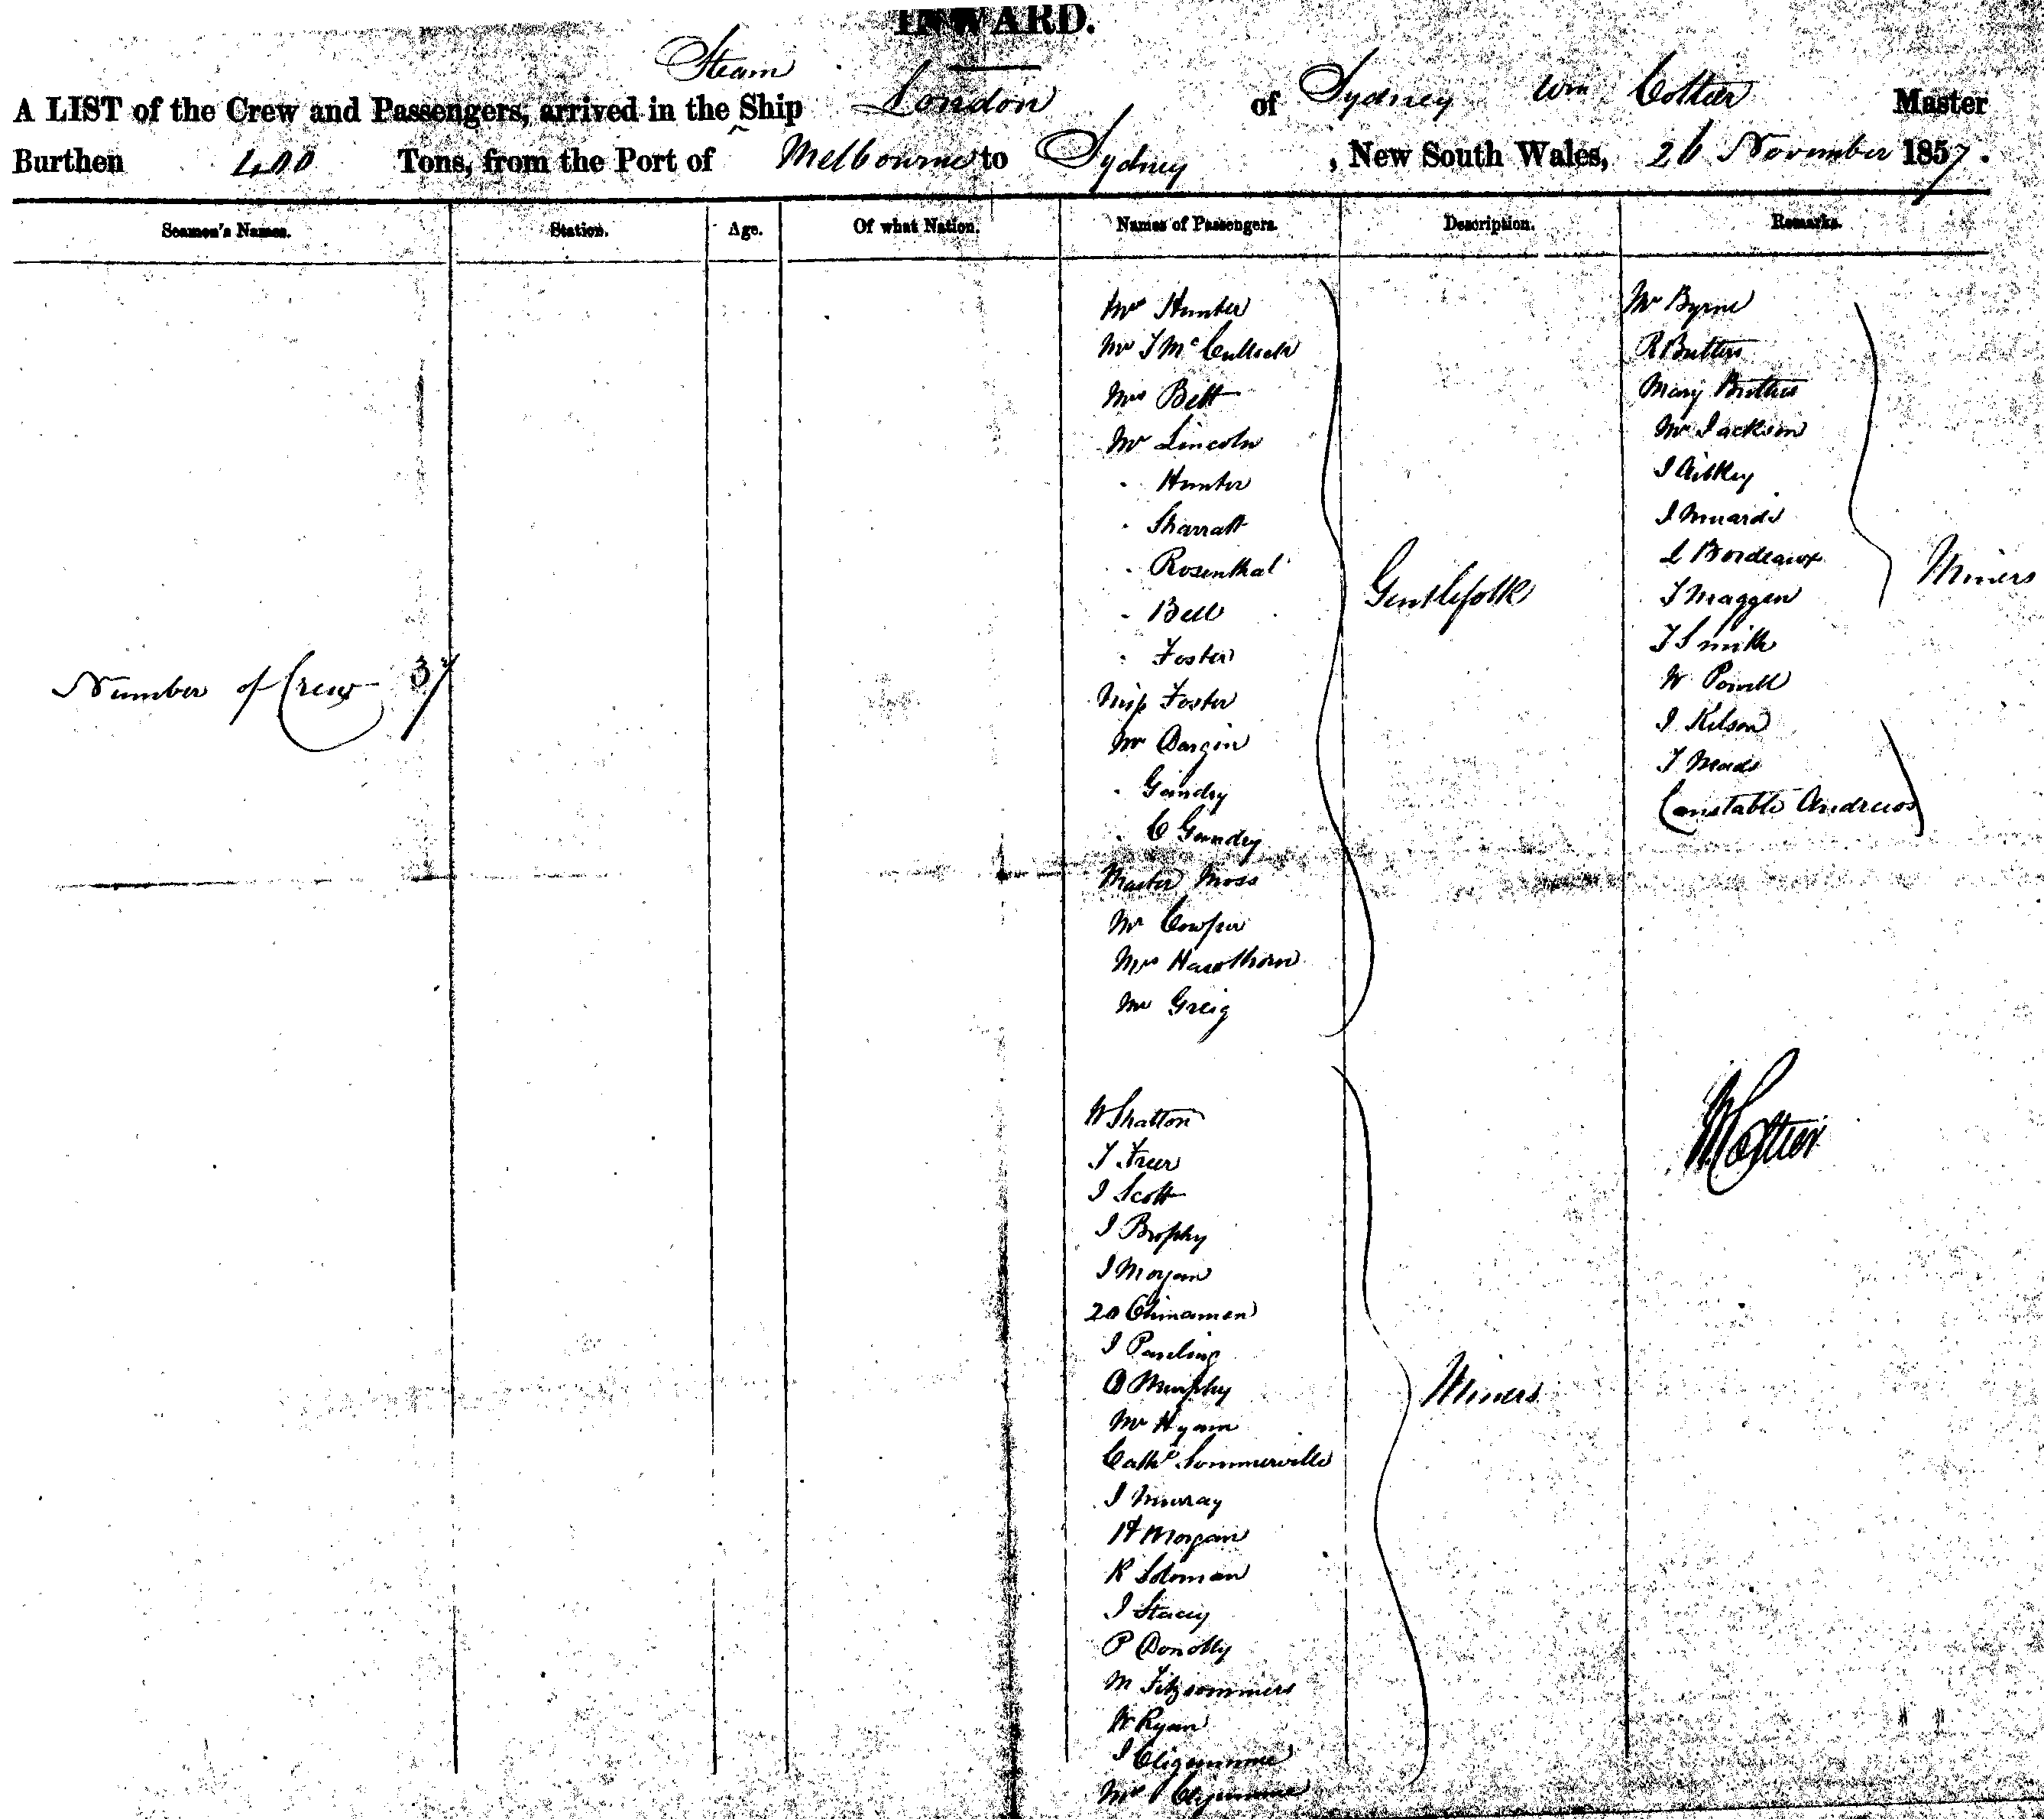 INWARD.
Steam
A LIST of the Crew and Passengers, arrived in the Ship London of Sydney Wm Cottier Master
Burthen 400 Tons, from the Port of Melbourne to Sydney, New South Wales, 26 November 1857.
Seamen's Names. Station. Age. Of what Nation. Names of Passengers. Description. Remarks.
Number of Crew 37
Mr Hunter
Mr J McCulloch
Mrs Bett
Mr Lincoln
" Hunter
" Sharratt
" Rosenthal
" Bell
" Foster
Miss Foster
Mr Dargin
" Gaundry
" C Gaundry
Master Moss
Mr Cowper
Mrs Hawthorn
Mr Greig
Gentlefolk
W Shatton
T Freer
J Scott
J Brophy
J Morgan
20 Chinamen
J Pauling
D Murphy
Mr Hyam
Cathe Sommerville
J Murray
H Morgan
R Soloman
J Stacey
P Donolly
M Fitzsommers
W Ryan
J
Mrs
Miners
Mr Byrne
R Butters
Mary Butters
Mr Jackson
J
J
L Bordeaux
T Maggen
T Smith
W Powell
J Kilson
T Meads
Constable Andrews
Miners
W Cottier